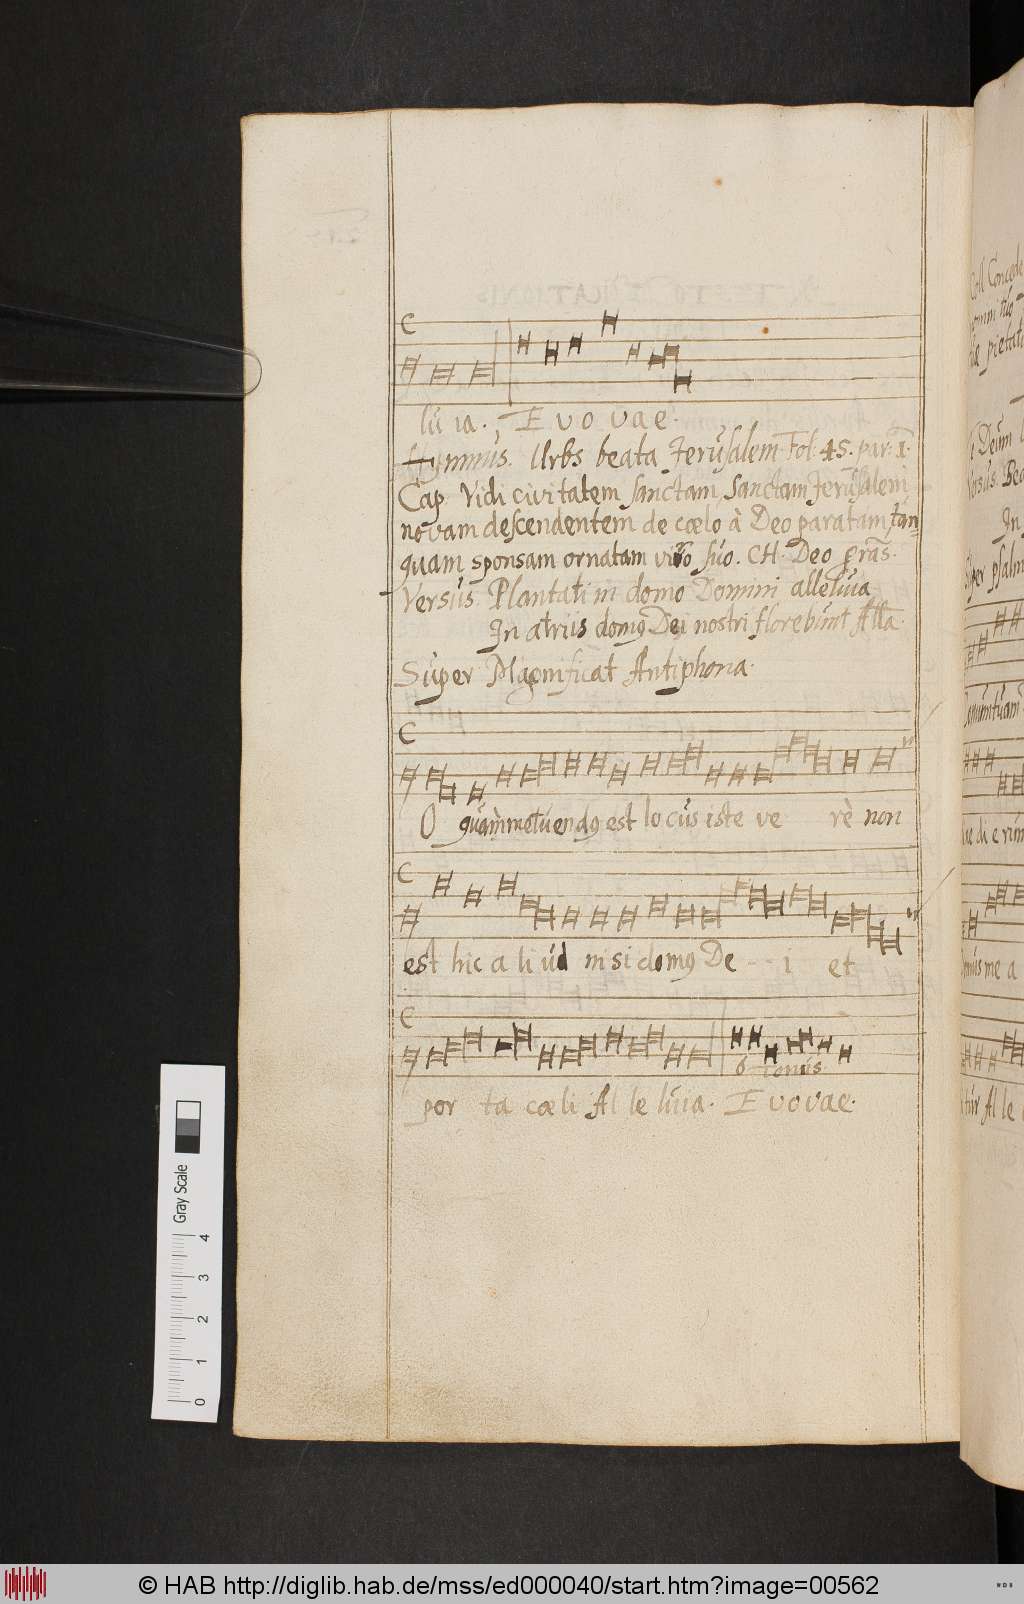 lu ia. E v o v a e.
Hymnus. Urbs beata Jerusalem Fol: 45. par: 1.
Cap. Vidi civitatem sanctam, sanctam Jerusalem
novam descendentem de cœlo à Deo paratam, tan=
quam sponsam ornatam viro suo. CH. Deo gras.
Versus. Plantati in domo Domini alleluia
In atriis domus Dei nostri florebunt Alla.
Super Magnificat Antiphona.
O quàm metuendus est locus iste ve rè non
est hic a li ud ni si domus De - - i et
6 Tonus.
por ta cœli Al le luia. E v o v a e.
Gray Scale
0 1 2 3 4
© HAB http://diglib.hab.de/mss/ed000040/start.htm?image=00562